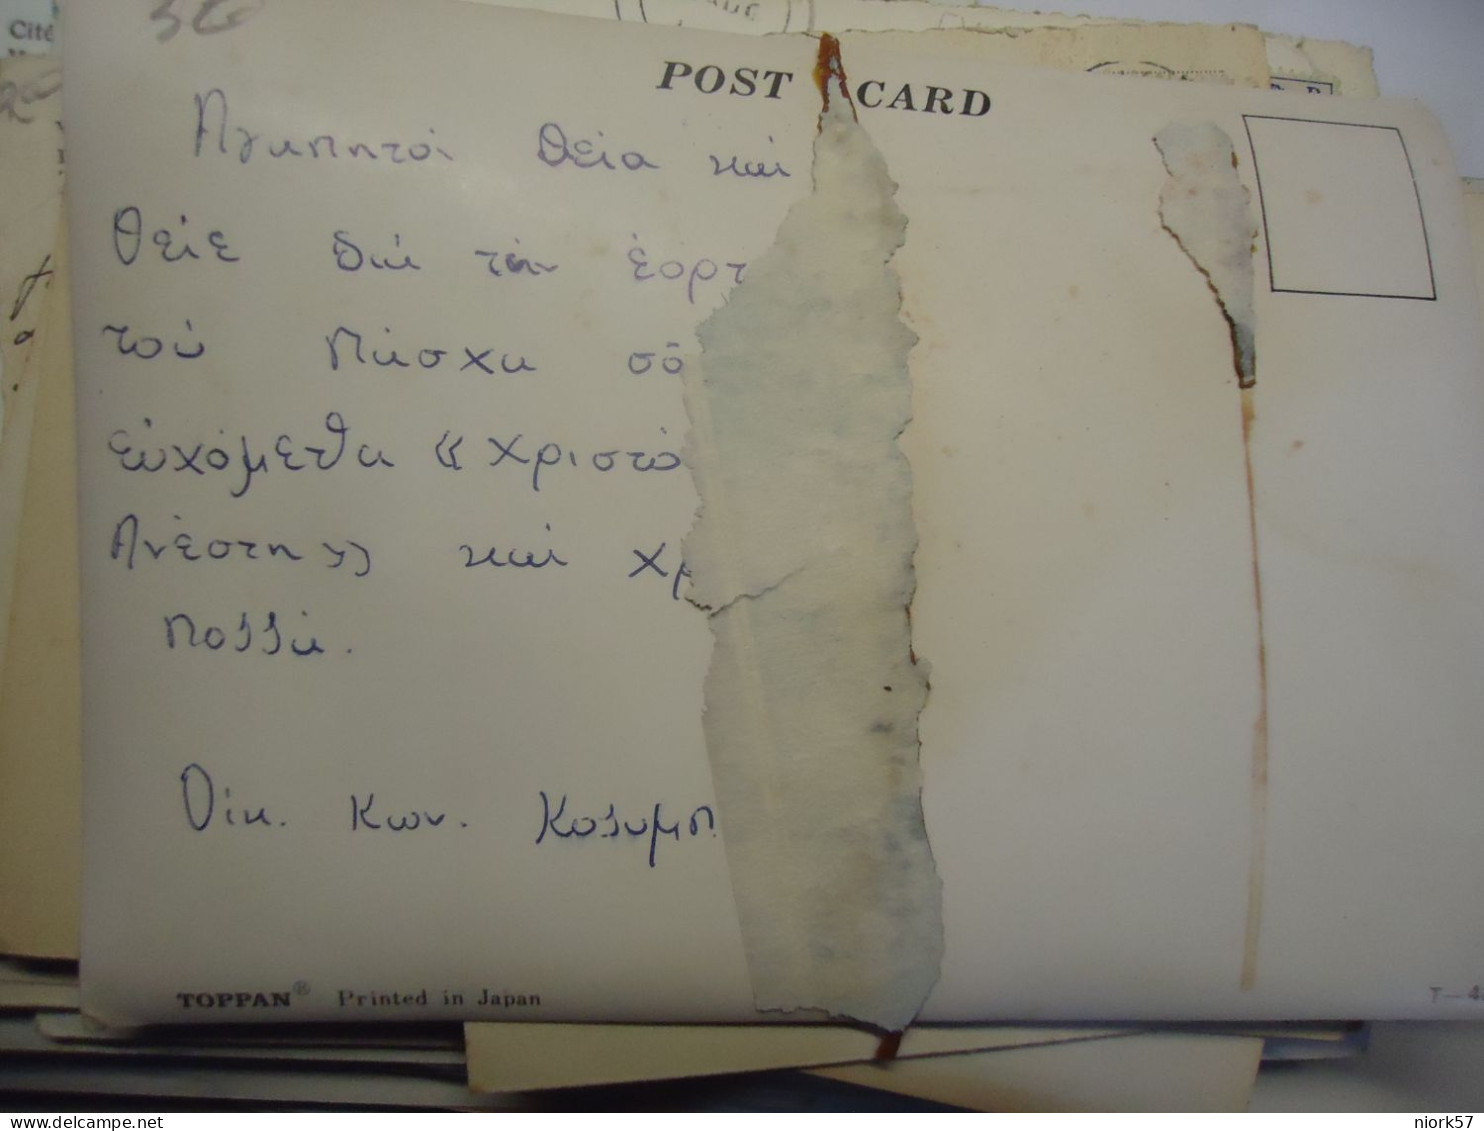 POST CARD
Ἀγαπητοί θεία καί
θείε διά τήν ἑορτ
τοῦ Πάσχα σᾶ
εὐχόμεθα «Χριστό
Ἀνέστη» καί χρ
πολλά.
Οἰκ. Κων. Κολυμπ
TOPPAN® Printed in Japan
T-4
Cité
niork57